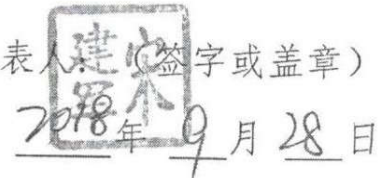 表人：（签字或盖章）
2018年 9月 28日